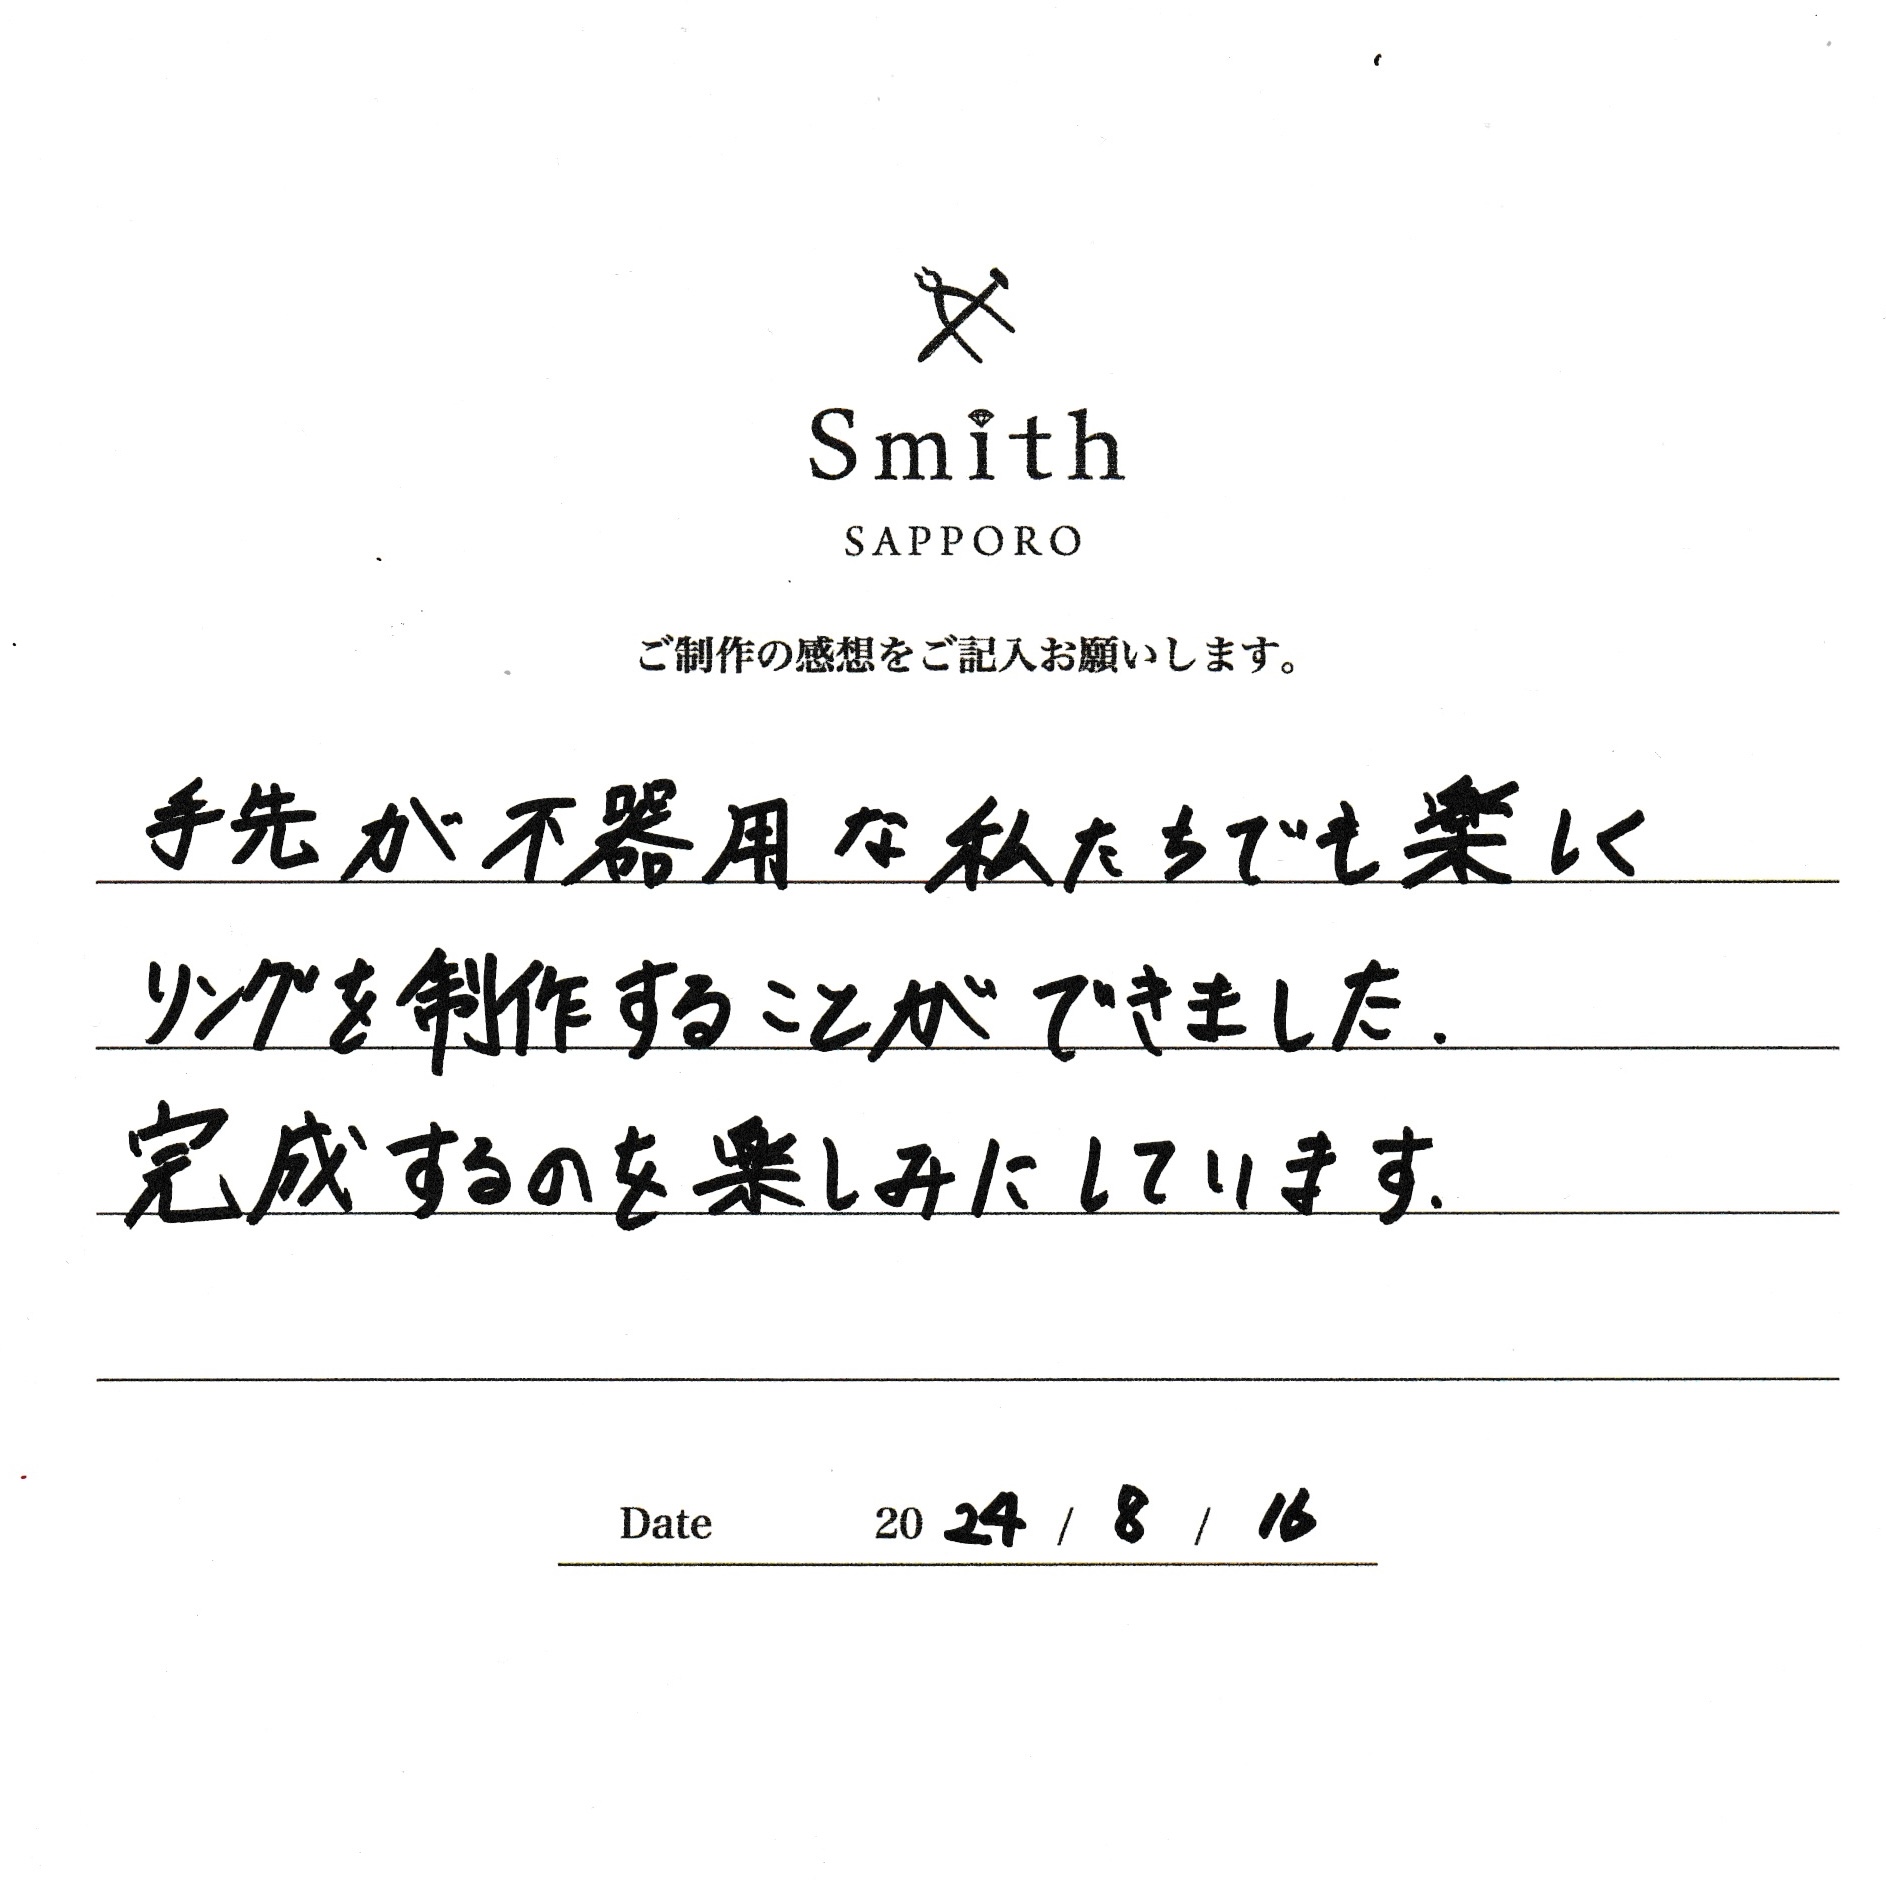 Smith
SAPPORO
ご制作の感想をご記入お願いします。
手先が不器用な私たちでも楽しく
リングを制作することができました.
完成するのを楽しみにしています.
Date 2024 / 8 / 16